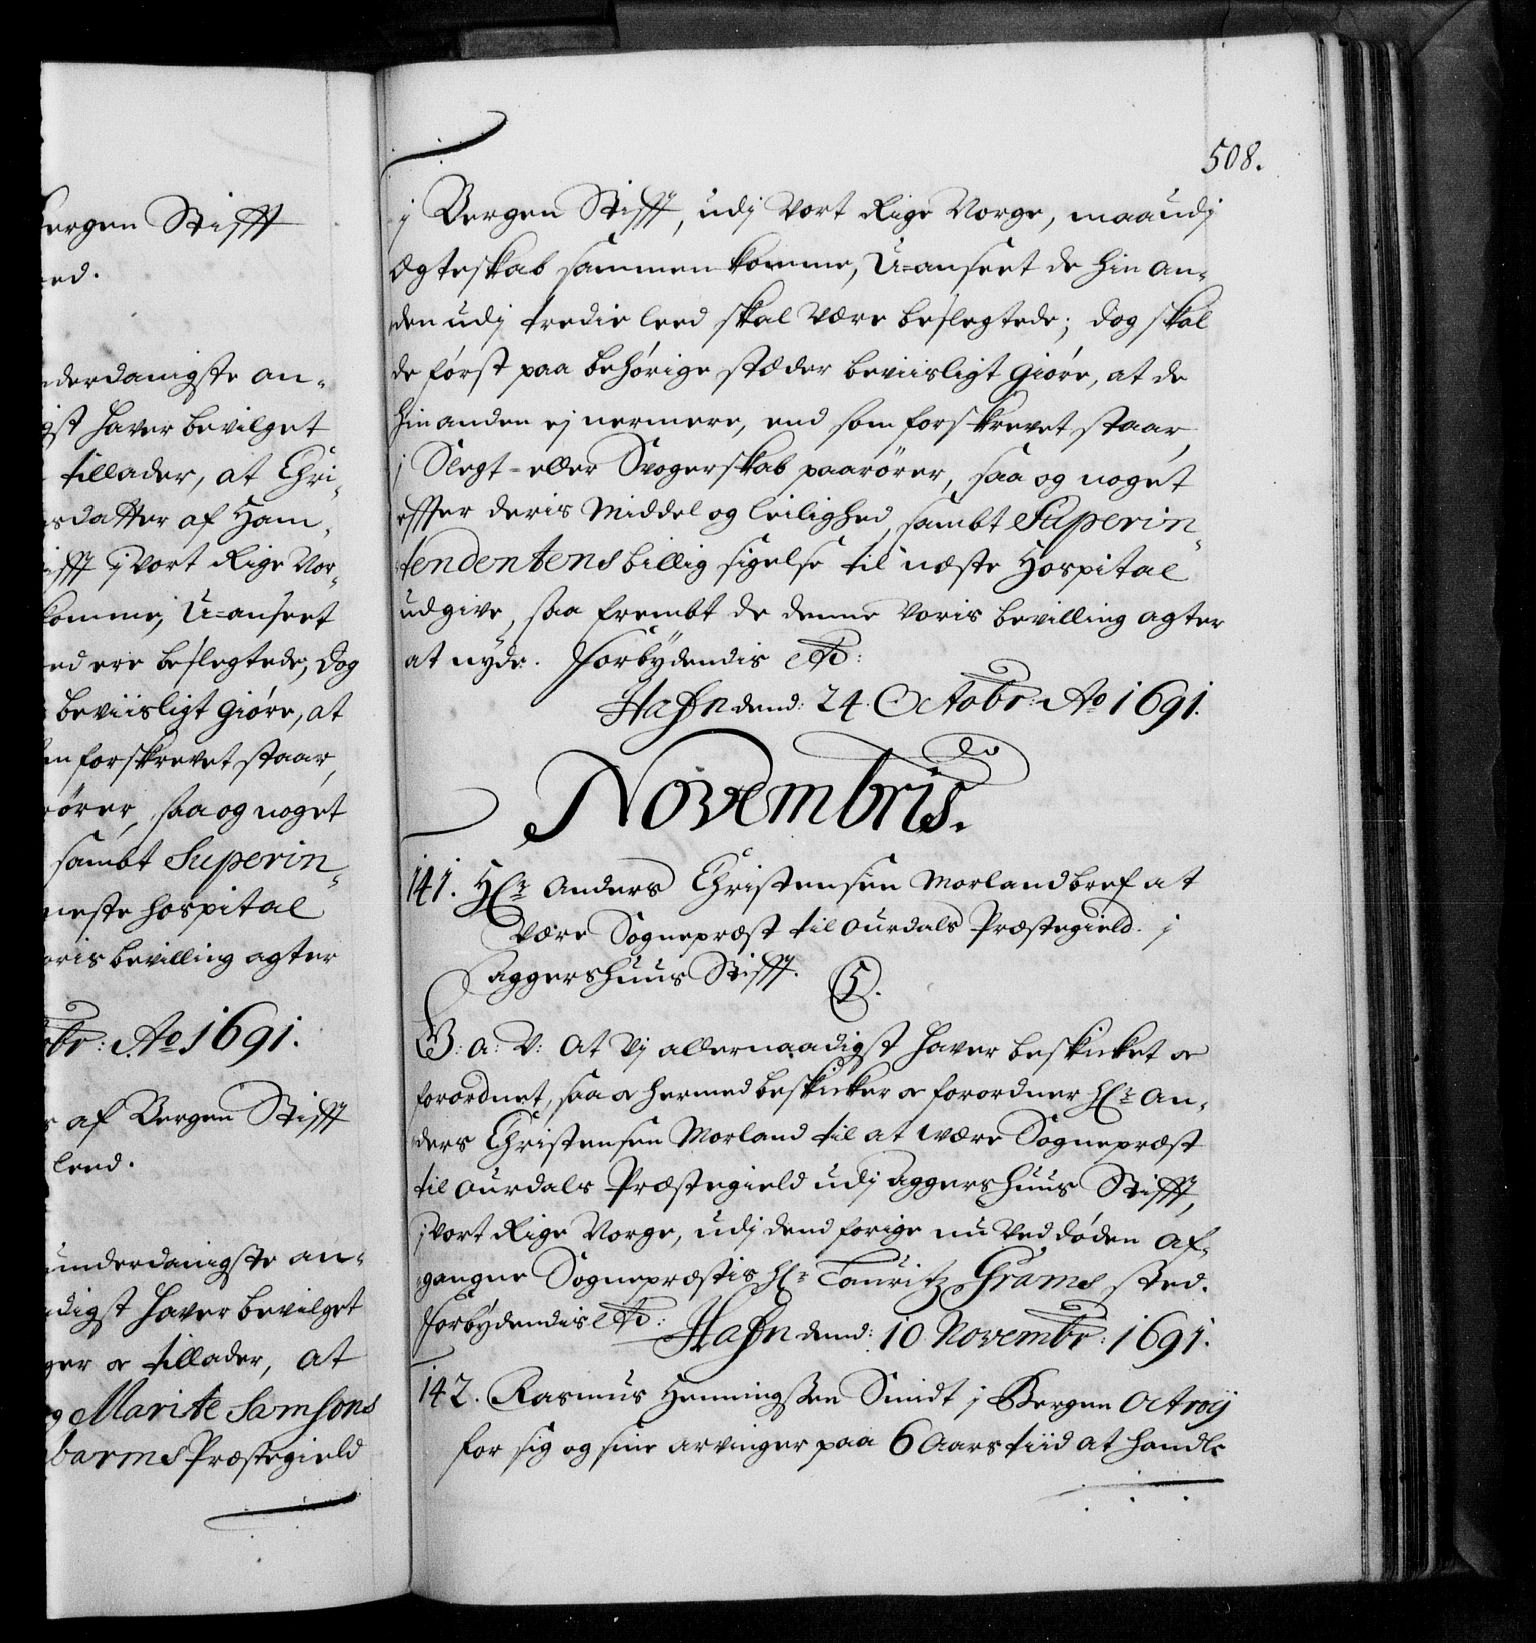 ergen Stifft
ed.
nderdanigste an-
gst hafver bevilget
tillader, at Chri-
sdatter af Ham-
ifft j Vort Rige Nor-
komme, U-anseet
ed ere beslegtede, dog
beviisligt giøre, at
m forskrevet staar,
rører, saa og noget
sambt Superin-
neste hospital
oris bevilling agter
obr: Ao 1691.
af Bergen Stifft
leed.
underdanigste an-
digst hafver bevilget
ger & tillader, at
g Marite Samsons
barms Præstegield
508.
j Bergen Stifft, udj Vort Rige Norge, maa udj
Ægteskab sammen komme, U-anseet de hin an-
den udj tredie leed skal være beslegtede; dog skal
de først paa behørige stæder beviisligt giøre, at de
hin anden ej nermere, end som forskrevet staar,
j Slegt- eller Svogerskab paarører, saa og noget
effter deris Middel og leilighed, sambt Superin-
tendentens billig sigelse til næste Hospital
udgive, saa frembt de denne Voris bevilling agter
at nyde. Forbydendis etc:
Hafn dend: 24. Octobr: Ao 1691.
Novembris.
141. Hr: Anders Christensen Morland bref at
være Sognepræst til Ourdals Præstegield j
Aggershuus Stifft. 5.
G: A: V: At Vj allernaadigst hafver beskicket &
forordnet, saa & hermed beskicker & forordner Hr: An-
ders Christensen Morland til at være Sognepræst
til Ourdals Præstegield udj Aggershuus Stifft,
j Vort Rige Norge, udj dend forige nu ved døden af-
gangne Sognepræstis Hr: Lauritz Grams sted.
Forbydendis etc: Hafn dend: 10 Novembr: 1691.
142. Rasmus Henningssen Smidt j Bergen Octroij
for sig og sine arvinger paa 6 Aars tiid at handle